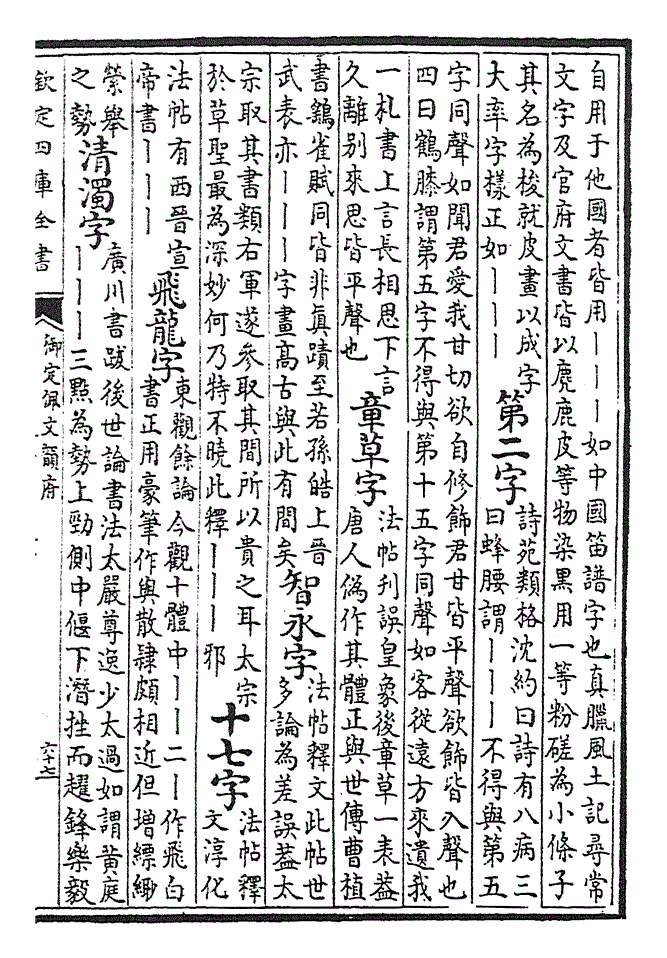 自用于他國者皆用｜｜｜如中國笛譜字也真臘風土記尋常
文字及官府文書皆以麂鹿皮等物染黑用一等粉磋為小條子
其名為梭就皮畫以成字
大率字様正如｜｜｜
第二字
詩苑類格沈約曰詩有八病三
曰蜂腰謂｜｜｜不得與第五
字同聲如聞君愛我甘切欲自修飾君甘皆平聲欲飾皆入聲也
四曰鶴膝謂第五字不得與第十五字同聲如客從遠方來遺我
一札書上言長相思下言
久離别來思皆平聲也
章草字
法帖刋誤皇象後章草一表葢
唐人偽作其體正與世傳曹植
書鷂雀賦同皆非真蹟至若孫皓上晉
武表亦｜｜｜字畫髙古與此有間矣
智永字
法帖釋文此帖世
多論為差誤葢太
宗取其書類右軍遂參取其間所以貴之耳太宗
於草聖最為深妙何乃特不曉此釋｜｜｜邪
十七字
法帖釋
文淳化
法帖有西晉宣
帝書｜｜｜
飛龍字
東觀餘論今觀十體中｜｜二｜作飛白
書正用豪筆作與散隷頗相近但増縹緲
縈舉
之勢
清濁字
廣川書跋後世論書法太嚴尊逸少太過如謂黄庭
｜｜｜三點為勢上勁側中偃下潛挫而趯鋒樂毅
欽定四庫全書
御定佩文韻府
六十七